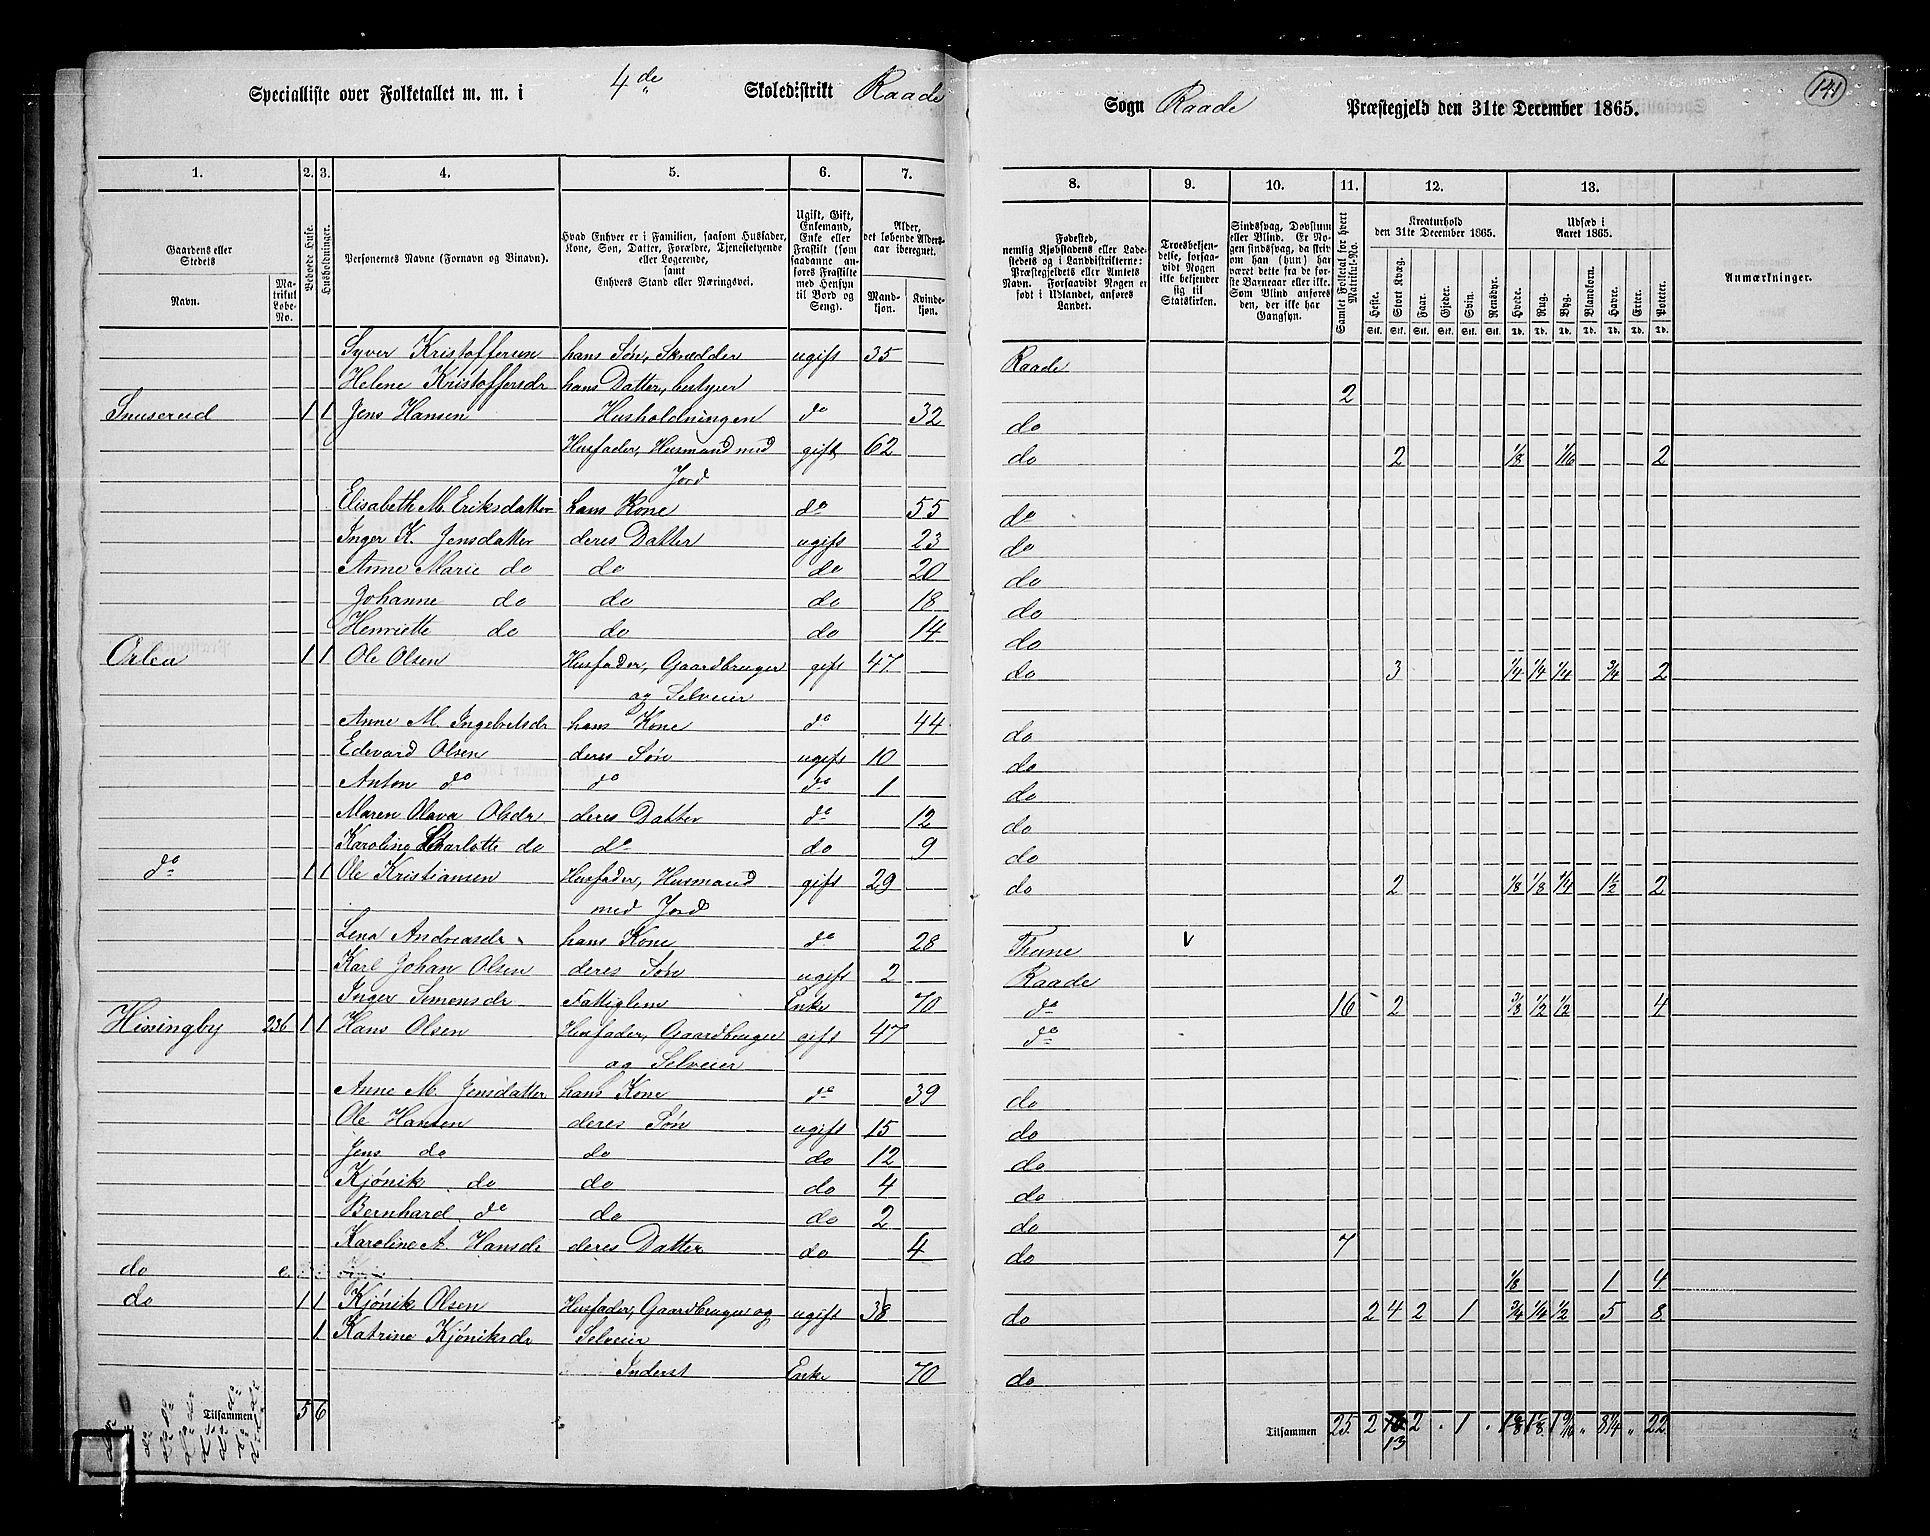 Specialliste over Folketallet m. m. i 4de Skoledistrikt Raade Sogn Raade Præstegjeld den 31te December 1865.
141
1. 2. 3. 4. 5. 6. 7. 8. 9. 10. 11. 12. 13.
Gaardens eller Stedets
Navn.
Matrikul Løbe-No.
Beboede Huse.
Husholdninger.
Personernes Navne (Fornavn og Binavn).
Hvad Enhver er i Familien, saasom Husfader, Kone, Søn, Datter, Forældre, Tjenestetyende eller Logerende, samt Enhvers Stand eller Næringsvei.
Ugift, Gift, Enkemand, Enke eller Fraskilt (som saadanne anføres med Fraskilte med Hensyn til Bord og Seng).
Alder, det løbende Alders-aar iberegnet.
Mandkjøn.
Kvindekjøn.
Fødested, nemlig Kjøbstadens eller Ladestedets og i Landdistrikterne: Præstegjeldets eller Amtets Navn. Forsaavidt Nogen er født i Udlandet, anføres Landet.
Troesbekjendelse, forsaavidt Nogen ikke bekjender sig til Statskirken.
Sindssvag, Døvstum eller Blind. Er Nogen sindssvag, da skriv om han (hun) har været dette fra de første Barneaar eller ikke. Som Blind anføres den, der ikke har Gangsyn.
Samlet Folketal for hvert Matrikul-No.
Kreaturhold den 31te December 1865.
Heste. Stort Kvæg. Faar. Gjeder. Svin. Rensdyr.
Stk. Stk. Stk. Stk. Stk. Stk.
Udsæd i Aaret 1865.
Hvede. Rug. Byg. Blandkorn. Havre. Erter. Poteter.
Td. Td. Td. Td. Td. Td. Td.
Anmærkninger.
Syver Kristoffersen hans Søn, Skrædder ugift 35 Raade
Helene Kristoffersdr hans Datter, bestyrer 2
Snuserud 1 1 Jens Hansen Husholdningen do 32 do
Husfader, Husmand med gift 62 do 2 1/8 1/16 2
Jord
Elisabeth M. Eriksdatter hans Kone do 55 do
Inger K. Jensdatter deres Datter ugift 23 do
Anne Marie do do do 20 do
Johanne do do do 18 do
Henriette do do do 14 do
Orlea 1 1 Ole Olsen Husfader, Gaardbruger gift 47 do 3 1/4 1/4 1/4 3/4 2
og Selveier
Anne M. Ingebretsdr hans Kone do 44 do
Edevard Olsen deres Søn ugift 10 do
Anton do do do 1 do
Maren Olava Olsdr deres Datter do 12 do
Karoline Charlotte do do do 9 do
do 1 1 Ole Kristiansen Husfader, Husmand gift 29 do 2 1/8 1/8 1/4 1 1/2 2
med Jord
Lena Andreasdr hans Kone do 28 Thune v
Karl Johan Olsen deres Søn ugift 2 Raade
Inger Simensdr Fattiglem Enke 70 do 16 2 1/2 1/2 4
Hissingby 236 1 1 Hans Olsen Husfader, Gaardbruger gift 47 do
og Selveier
Anne M. Jensdatter hans Kone do 39 do
Ole Hansen deres Søn ugift 15 do
Jens do do do 12 do
Kjønik do do do 4 do
Bernhard do do do 2 do
Karoline A. Hansdr deres Datter do 4 do 7
do c. 1/8 1 4
do 1 1 Kjønik Olsen Husfader, Gaardbruger og ugift 38 do 2 4 2 1 3/4 1/4 1/2 5 8
1 Katrine Kjøniksdr Selveier
Inderst Enke 70 do
Tilsammen 5 6
Tilsammen 25 2 2 1 22
13